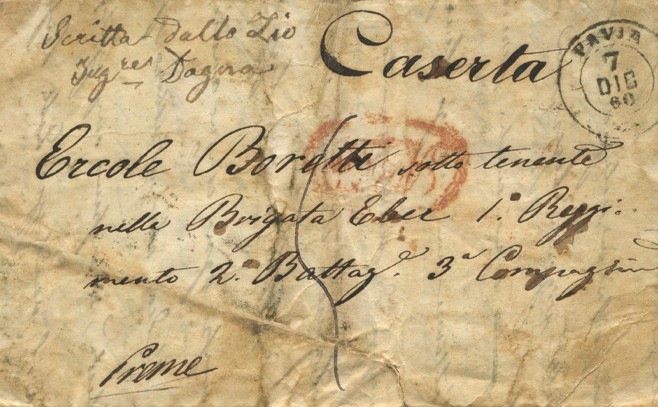 Scritta dallo Zio
Ing.res Dagna
Caserta
PAVIA
7
DIC
60
Ercole Boratti sotto tenente
nella Brigata Eber 1.° Reggi-
mento 2.° Battag.e 3.a Compagnia
Preme